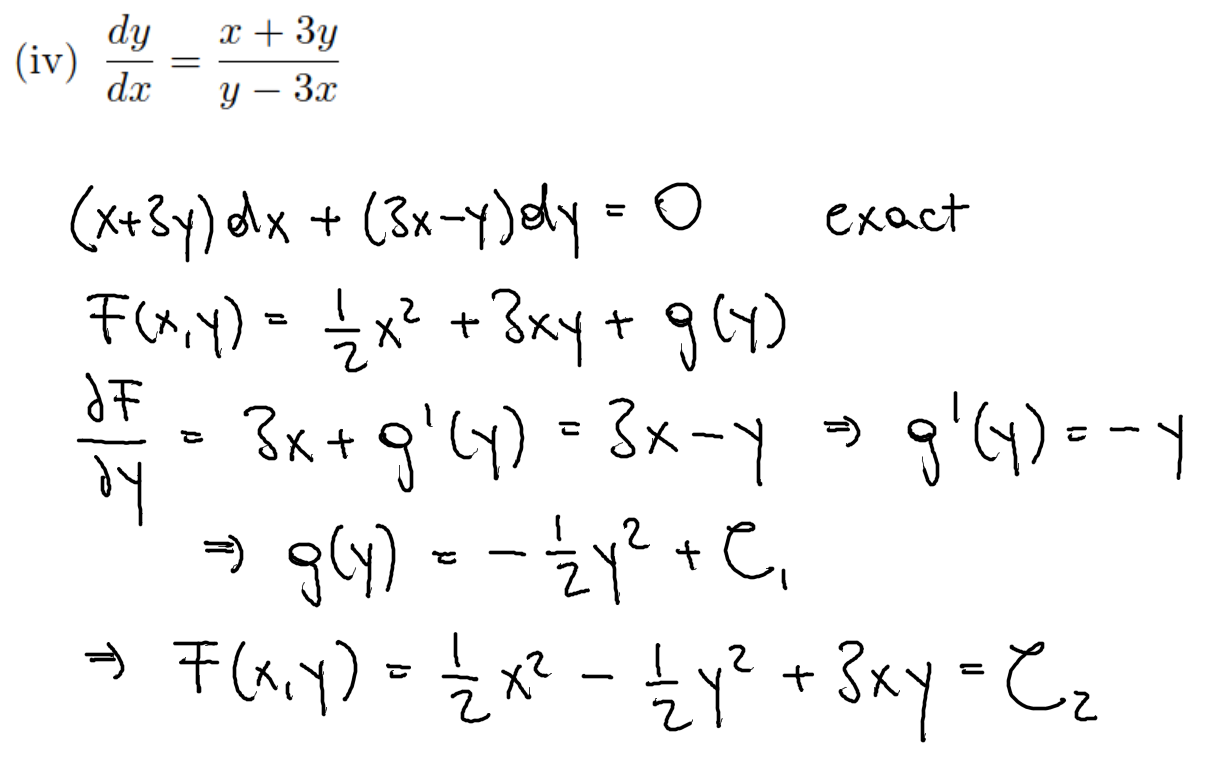 (iv) dy/dx = (x + 3y)/(y − 3x)
(x+3y)dx + (3x−y)dy = 0 exact
F(x,y) = 1/2 x² + 3xy + g(y)
∂F/∂y = 3x + g'(y) = 3x − y ⇒ g'(y) = −y
⇒ g(y) = − 1/2 y² + C₁
⇒ F(x,y) = 1/2 x² − 1/2 y² + 3xy = C₂